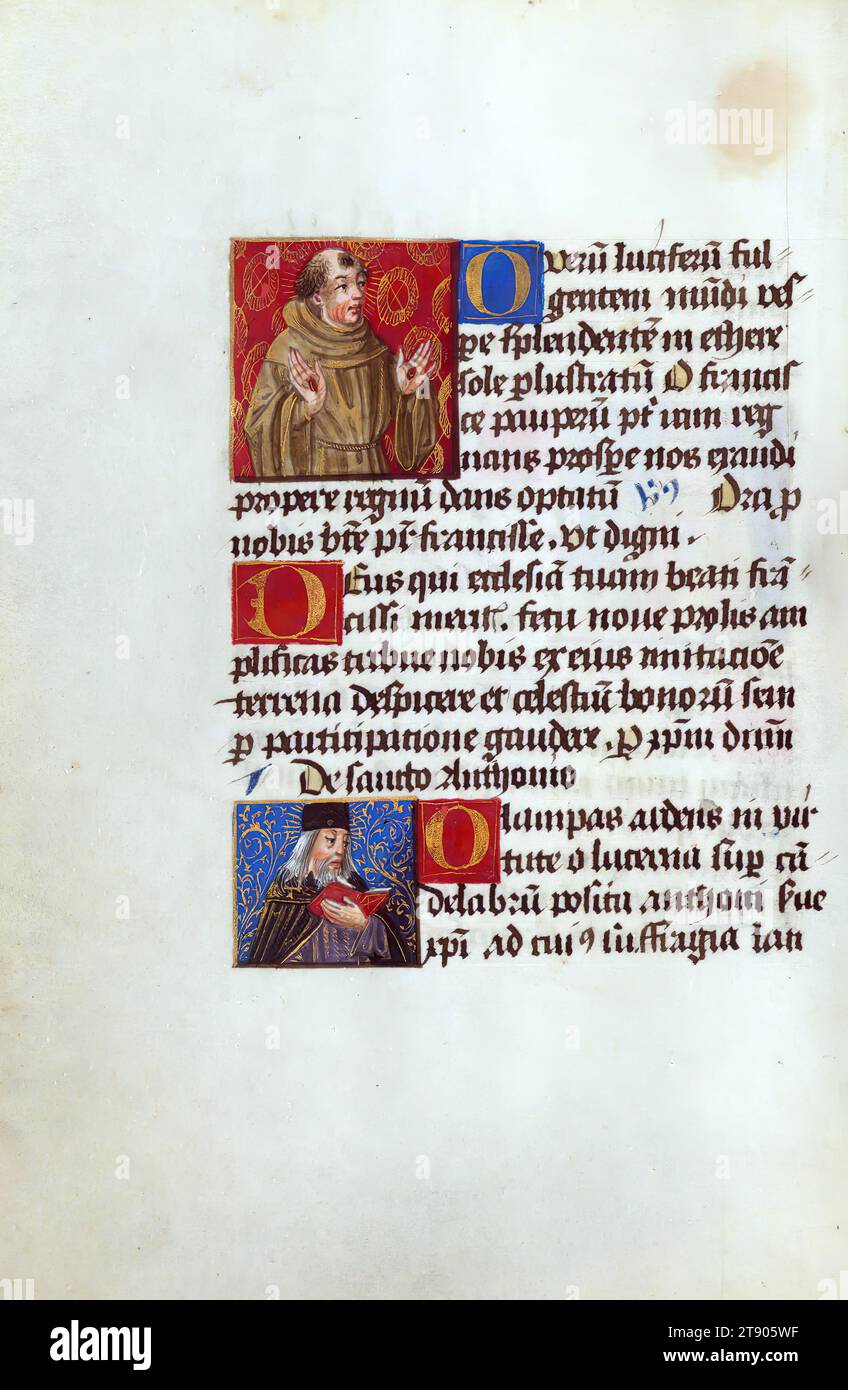 O verū luciferū ful
gentem mūdi ves
pe splendentē in ethere
sole plustratū O francis
ce pauperū pr̄ iam reg
nans prospe nos exaudi
propere regnū dans optatū Ora p
nobis bēe pr̄ francisse. Vt digni.
Deus qui ecclesiā tuam beati frā
cissi merit. fetu noue prolis am
plificas tribue nobis ex eius imitacioē
terrena despicere et celestiū bonorū sem
p participatione gaudere. P xp̄m dn̄m
De sancto Anthonio
O lampas ardens in vir
tute o lucerna sup cā
delabrū posita anthoni sue
xp̄i ad cui9 suffragia ian
alamy
Image ID: 2T905WF
www.alamy.com